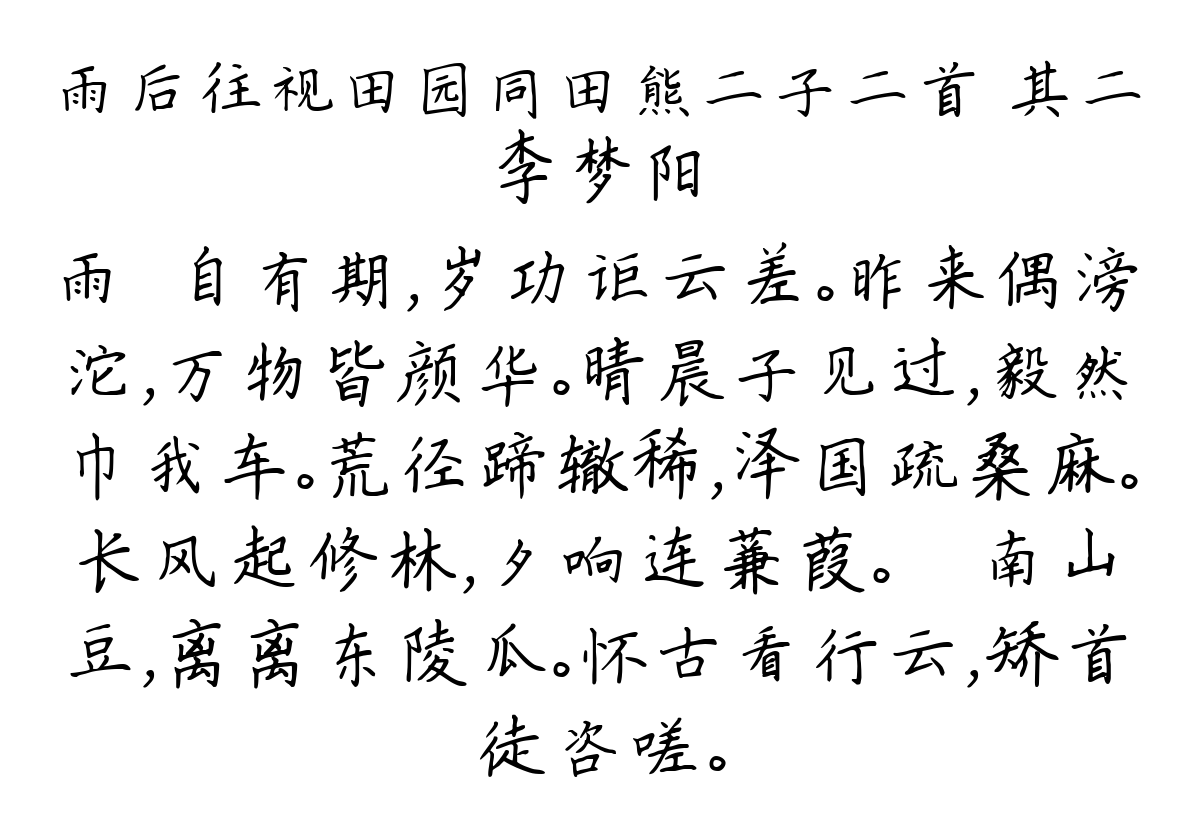 雨后往视田园同田熊二子二首 其二
李梦阳
雨 自有期,岁功讵云差。昨来偶滂
沱,万物皆颜华。晴晨子见过,毅然
巾我车。荒径蹄辙稀,泽国疏桑麻。
长风起修林,夕响连蒹葭。 南山
豆,离离东陵瓜。怀古看行云,矫首
徒咨嗟。